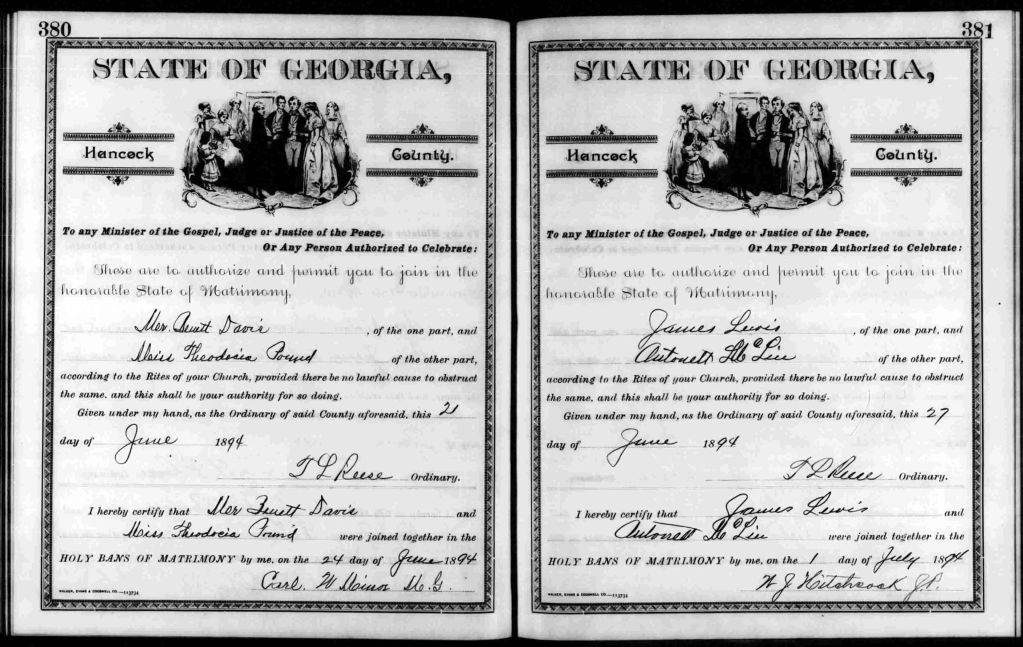 380
STATE OF GEORGIA,
Hancock County.
To any Minister of the Gospel, Judge or Justice of the Peace,
Or Any Person Authorized to Celebrate:
These are to authorize and permit you to join in the
honorable State of Matrimony,
Mr. Davis , of the one part, and
Miss Theodocia Pound of the other part,
according to the Rites of your Church, provided there be no lawful cause to obstruct
the same, and this shall be your authority for so doing.
Given under my hand, as the Ordinary of said County aforesaid, this 21
day of June 1894
T L Reese Ordinary.
I hereby certify that Mr Davis and
Miss Theodocia Pound were joined together in the
HOLY BANS OF MATRIMONY by me, on the 24 day of June 1894
Carl W Minor M. G.
WALKER, EVANS & COGSWELL CO.—113734
381
STATE OF GEORGIA,
Hancock County.
To any Minister of the Gospel, Judge or Justice of the Peace,
Or Any Person Authorized to Celebrate:
These are to authorize and permit you to join in the
honorable State of Matrimony,
James Lewis , of the one part, and
Antonett of the other part,
according to the Rites of your Church, provided there be no lawful cause to obstruct
the same, and this shall be your authority for so doing.
Given under my hand, as the Ordinary of said County aforesaid, this 27
day of June 1894
T L Reese Ordinary.
I hereby certify that James Lewis and
Antonett were joined together in the
HOLY BANS OF MATRIMONY by me, on the 1 day of July 1894
W J Hitchcock J.P.
WALKER, EVANS & COGSWELL CO.—113734